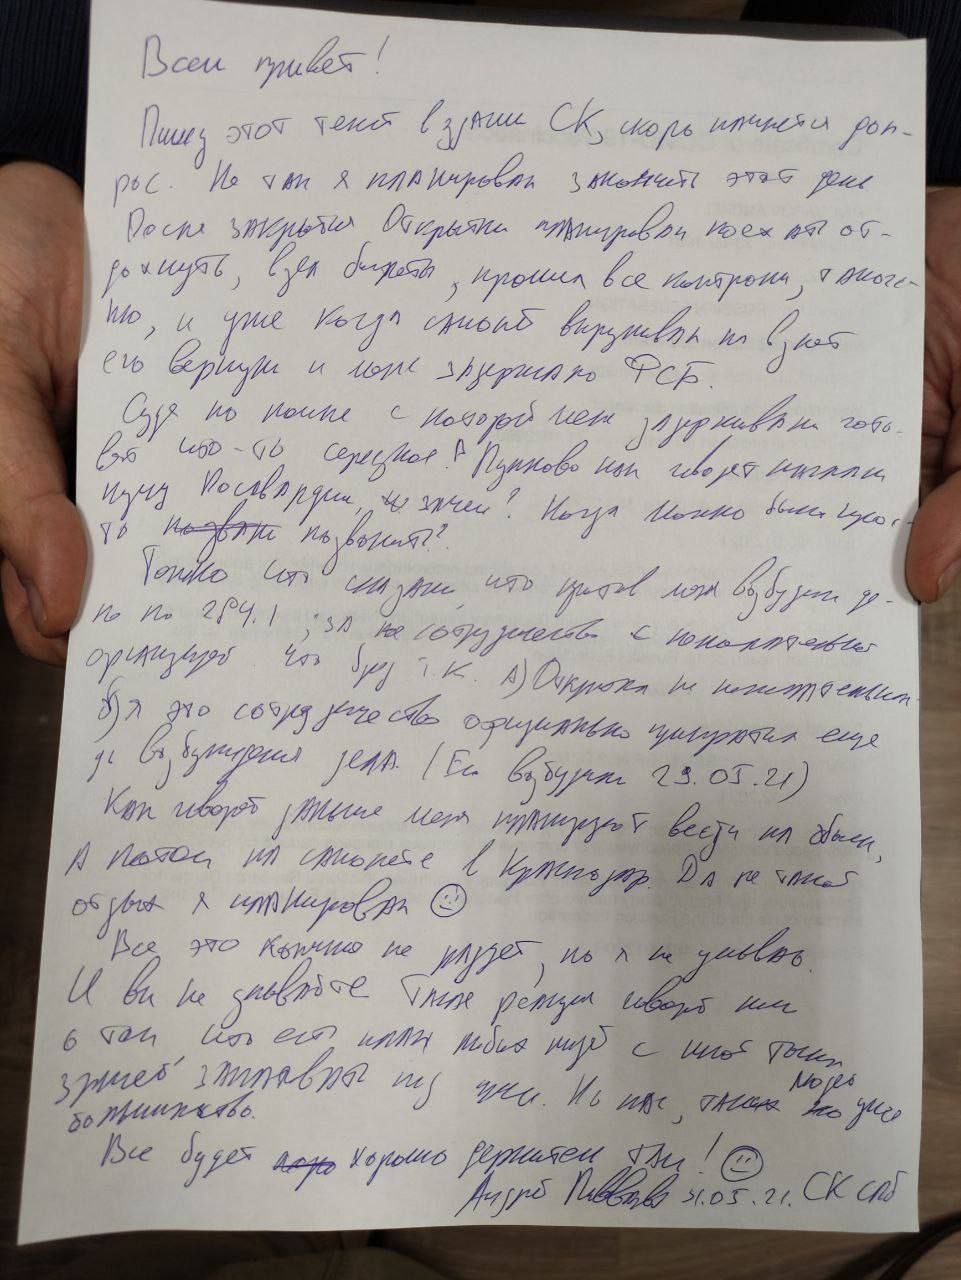 Всем привет!
Пишу этот текст в здании СК, скоро начнется доп-
рос. Не так я планировал закончить этот день
После закрытия Открытки планировал поехать от-
дохнуть, взял билеты, прошел все контроли, таможе-
ню, и уже когда самолет выруливал на взлет
его вернули и меня задержало ФСБ.
Судя по помпе с которой меня задерживали гото-
вят что-то серьезное. В Пулково как говорят нагнали
кучу Росгвардии, зачем? Когда можно было прос-
то позвонить?
Только что сказали, что против меня возбудили де-
ло по 284.1, за сотрудничество с нежелательной
организацией что бред т.к. А) Открытка не нежелательная
б) я это сотрудничество официально прекратил еще
до возбуждения дела. (Его возбудили 29.05.21)
Как говорят дальше меня планируют вести на обыск,
А потом на самолете в Краснодар. Да не такой
отдых я планировал ☺
Все это конечно не радует, но я не унываю.
И вы не унывайте Такая реакция говорит нам
о том что есть план любых людей с иной точки
зрения запдавать под
большинство.
Но нас, таких людей уже
Все будет хорошо держитесь там! ☺
Андрей Пивоваров 31.05.21. СК СПб